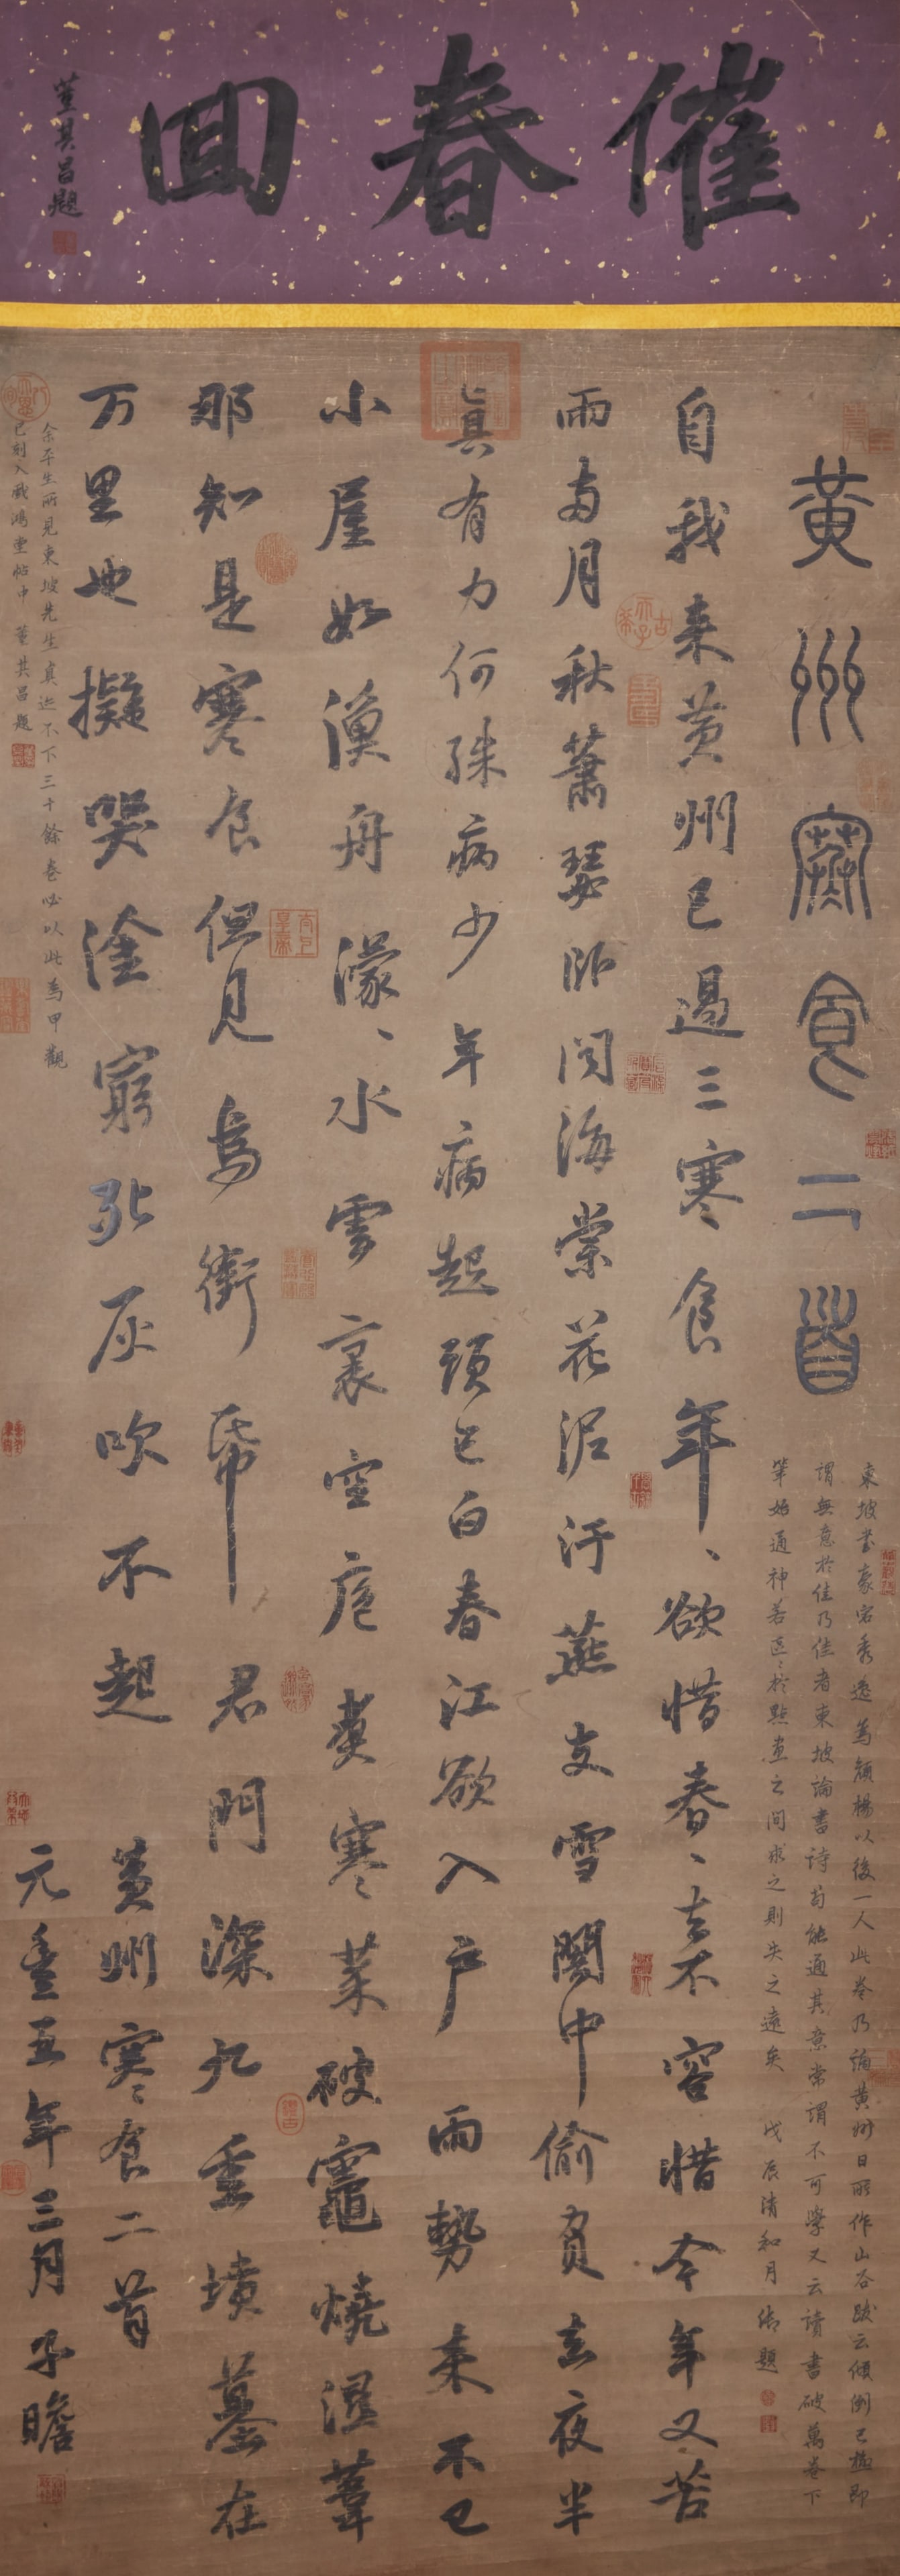 催春回
董其昌題
黃州寒食二首
東坡書豪宕秀逸為顏楊以後一人此卷乃謫黃州日所作山谷跋云傾倒已極即
謂無意於佳乃佳者東坡論書詩苟能通其意常謂不可學又云讀書破萬卷下
筆始通神若區〻於點畫之間求之則失之遠矣 戊辰清和月 御題
自我来黄州已過三寒食年〻欲惜春〻去不容惜今年又苦
雨兩月秋蕭瑟卧聞海棠花泥汙燕支雪闇中偷負去夜半
真有力何殊病少年病起頭已白春江欲入户雨勢来不已
小屋如漁舟濛〻水雲裏空庖煑寒菜破竈燒濕葦
那知是寒食但見烏銜帋君門深九重墳墓在
万里也擬哭塗窮死灰吹不起 黄州寒食二首
元豊五年三月子瞻
余平生所見東坡先生真迹不下三十餘卷必以此為甲觀
已刻入戲鴻堂帖中 董其昌題